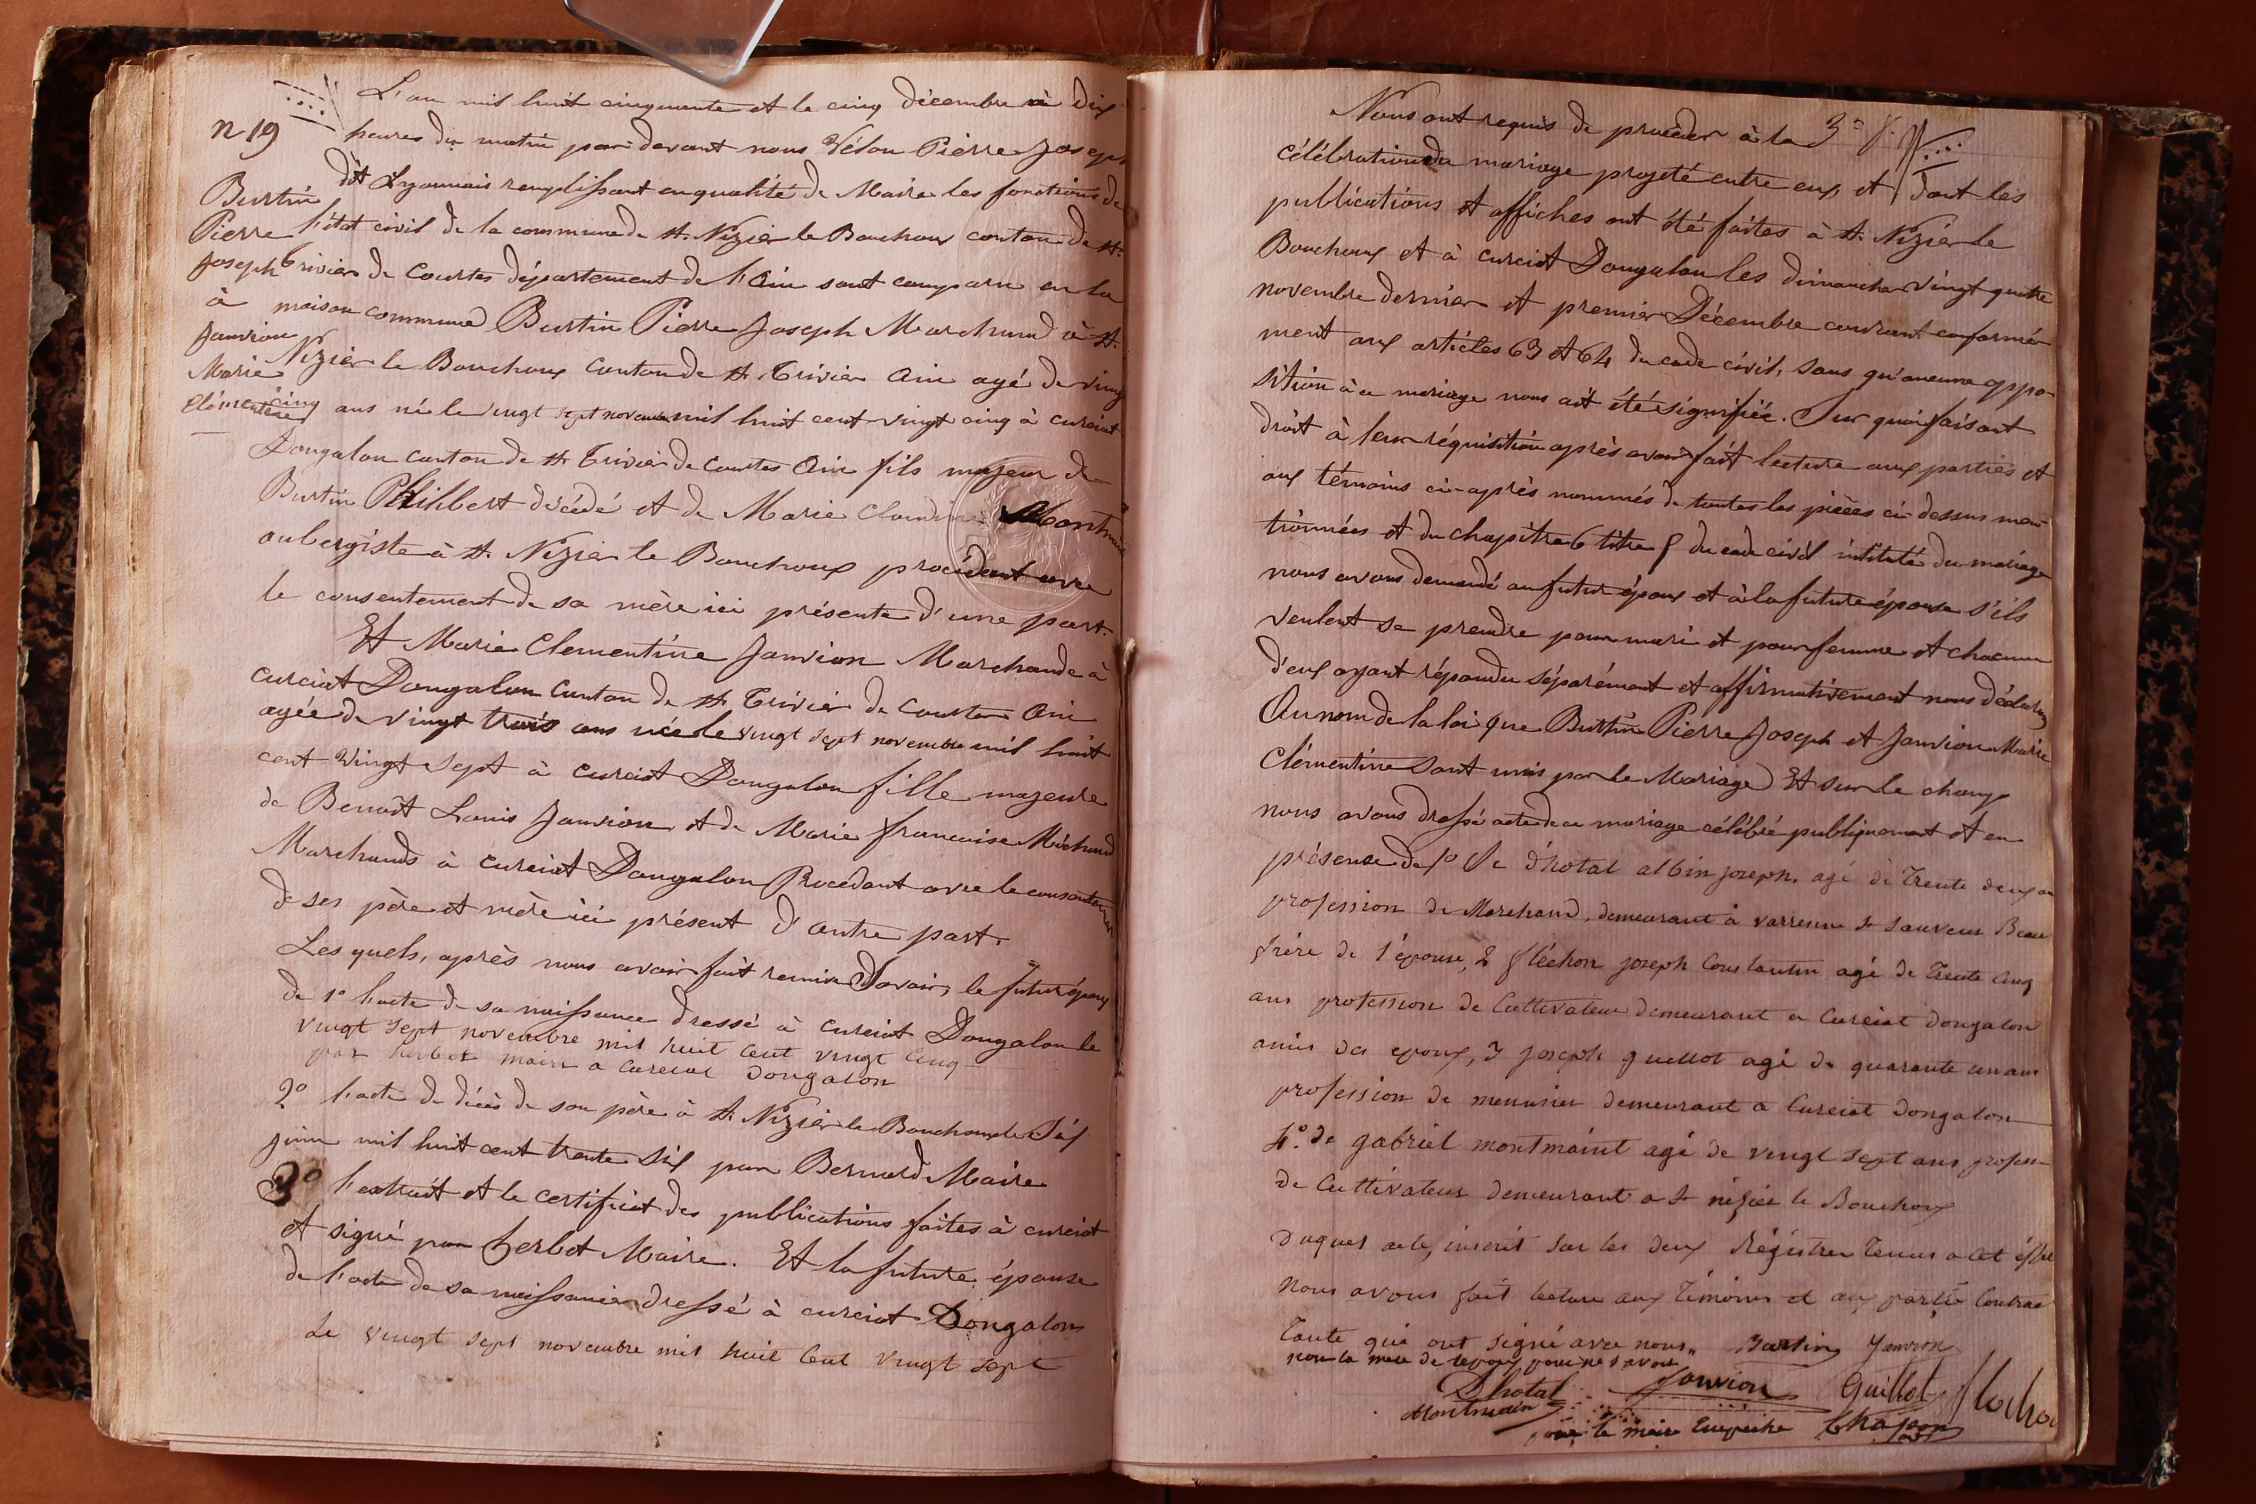 L'an mil huit cinquante et le cinq décembre à dix
n 19
heures du matin par devant nous Vélon Pierre Joseph
dit Lyonnais remplissant en qualité de Maire les fonctions de
l'état civil de la commune de St Nizier le Bouchoux canton de St
Trivier de Courtes département de l'Ain sont comparu en la
maison commune Burtin Pierre Joseph Marchand à St
Nizier le Bouchoux Canton de St Trivier Ain agé de vingt
cinq ans né le vingt sept novembre mil huit cent vingt cinq à curciat
Burtin
Pierre
Joseph
à
Janvion
Marie
Clémentine
Dongalon canton de St Trivier de Courtes Ain fils majeur de
Burtin Philibert décédé et de Marie Claudine Montmain
aubergiste à St Nizier le Bouchoux procédant avec
le consentement de sa mère ici présente d'une part.
Et Marie Clementine Janvion Marchande à
curciat Dongalon Canton de St Trivier de Courtes Ain
agée de vingt trois ans née le vingt sept novembre mil huit
cent vingt sept à curciat Dongalon fille majeure
de Benoît Louis Janvion et de Marie françoise Michaud
Marchands à curciat Dongalon Procédant avec le consentement
de ses père et mère ici présent d'autre part.
Les quels, après nous avoir fait remise Savoir, le futur époux
de 1° l'acte de sa naissance dressé à curciat Dongalon le
vingt sept novembre mil huit cent vingt cinq
par herbet maire a curciat Dongalon
2° l'acte de décès de son père à St Nizier le Bouchoux le Six
juin mil huit cent trente six par Bernard Maire
3° l'extrait et le certificat des publications faites à curciat
et signé par herbet Maire. Et la future épouse
de l'acte de sa naissance dressé à curciat Dongalon
Le vingt sept novembre mil huit cent vingt sept
Nous ont requis de procéder à la
célébration du mariage projeté entre eux et dont les
publications et affiches ont été faites à St Nizier le
Bouchoux et à curciat Dongalon les dimanches vingt quatre
novembre dernier et premier Décembre courant conformé-
ment aux articles 63 et 64 du code civil, sans qu'aucune oppo-
sition à ce mariage nous ait été signifiée. Sur quoi faisant
droit à leur réquisition après avoir fait lecture aux parties et
aux témoins ci-après nommés de toutes les pièces ci-dessus men-
tionnées et du chapitre 6 titre 5 du code civil intitulé du mariage
nous avons demandé au futur époux et à la future épouse s'ils
veulent se prendre pour mari et pour femme et chacun
d'eux ayant répondu séparément et affirmativement nous déclarons
Au nom de la loi que Burtin Pierre Joseph et Janvion Marie
Clémentine sont unis par le Mariage Et sur le champ
nous avons dressé acte de ce mariage célébré publiquement et en
présence de 1° De d'hotal albin joseph, agé de Trente deux an
profession de Marchand, demeurant à varrenne St Sauveur Beau
frère de l'épouse, 2 fléchon joseph Constantin agé de Trente cinq
ans profession de Cultivateur demeurant a Curciat Dongalon
amis des epoux, 3 joseph guillot agé de quarante un ans
profession de meunier demeurant a Curciat Dongalon
4° de gabriel montmaint agé de vingt sept ans profess-
de Cultivateur demeurant a St nizier le Bouchoux
Duquel acte, inscrit sur les deux Régistres Tenus a cet effet
Nous avons fait lecture aux Témoins et aux partie Contrac
Tante qui ont signé avec nous, Burtin Janvion
non la mere de lepoux pour ne savoir
Dhotal Janvion Guillot flechon
Montmain
pour le maire Empêché Chapon